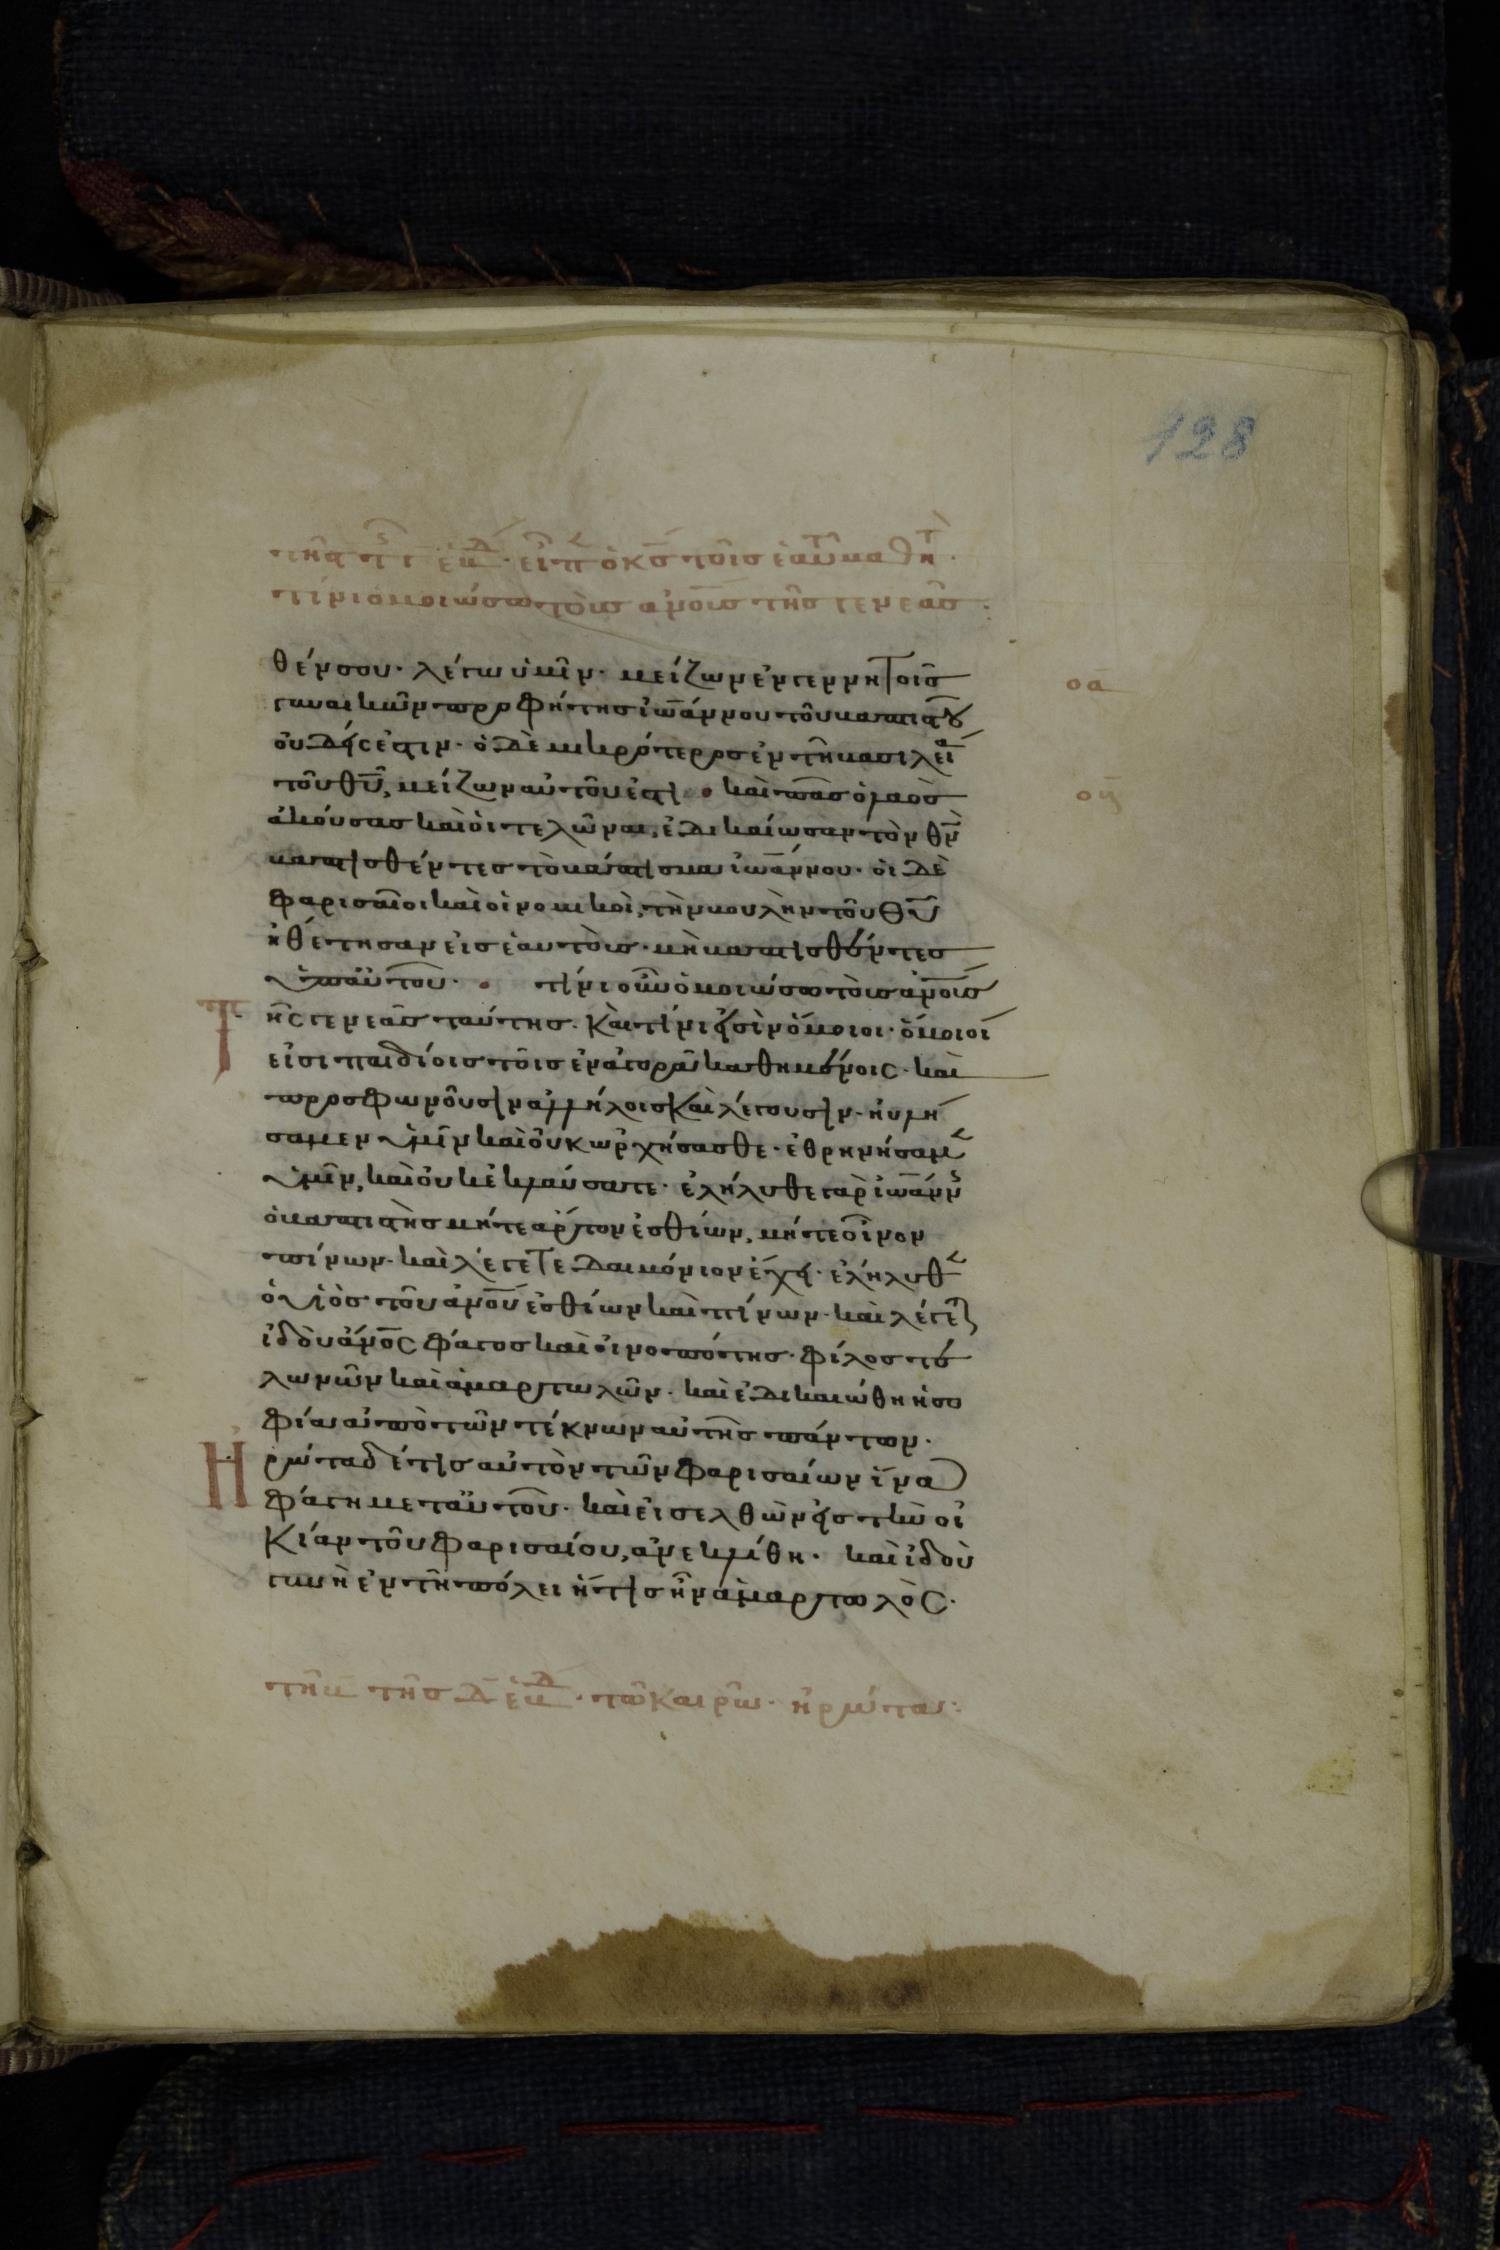 128
εἶπεν ὁ κ̅ς̅ τοῖς ἑαυτοῦ μαθητ
τίνι ὁμοιώσω τοὺς ἀν̅ο̅υ̅ς τῆς γενεᾶς
θέν σου· λέγω ὑμῖν· μείζων ἐν γεννητοῖς
οα
γυναικῶν προφήτης ἰωάννου τοῦ βαπτιστοῦ
οὐδείς ἐστιν· ὁ δὲ μικρότερος ἐν τῆ βασιλεία
τοῦ θ̅υ̅, μείζων αὐτοῦ ἐστι· καὶ πᾶς ὁ λαὸς
οβ
ἀκούσας καὶ οἱ τελῶναι, ἐδικαίωσαν τὸν θ̅ν̅
βαπτισθέντες τὸ βάπτισμα ἰωάννου· οἱ δὲ
φαρισαῖοι καὶ οἱ νομικοὶ, τὴν βουλὴν τοῦ θ̅υ̅
ἠθέτησαν εἰς ἑαυτοὺς· μὴ βαπτισθέντες
ὑπ' αὐτοῦ· τίνι οὖν ὁμοιώσω τοὺς ἀν̅ο̅υ̅ς
Τῆς γενεᾶς ταύτης· Καὶ τίνι εἰσὶν ὅμοιοι· ὅμοιοί
εἰσι παιδίοις τοῖς ἐν ἀγορᾶ καθημένοις· καὶ
προσφωνοῦσιν ἀλλήλοις Καὶ λέγουσιν· ηὐλή
σαμεν ὑμῖν καὶ οὐκ ὠρχήσασθε· ἐθρηνήσαμε
ὑμῖν, καὶ οὐκ ἐκλαύσατε· ἐλήλυθε γὰρ ἰωάνν
ὁ βαπτιστὴς μήτε ἄρτον ἐσθίων, μήτε οἶνον
πίνων· καὶ λέγετε δαιμόνιον ἔχει· ἐλήλυθε
ὁ υἱὸς τοῦ ἀν̅ο̅υ̅ ἐσθίων καὶ πίνων· καὶ λέγετ
ἰδοὺ ἄν̅ο̅ς φάγος καὶ οἰνοπότης· φίλος τε
λωνῶν καὶ ἁμαρτωλῶν· καὶ ἐδικαιώθη ἡ σο
φία ἀπὸ τῶν τέκνων αὐτῆς πάντων·
Ἠρώτα δέ τις αὐτὸν τῶν φαρισαίων ἵνα
φάγη μετ' αὐτοῦ· καὶ εἰσελθὼν εἰς τὴν οἰ
Κίαν τοῦ φαρισαίου, ἀνεκλίθη· καὶ ἰδοὺ
γυνὴ ἐν τῆ πόλει ἥτις ἦν ἁμαρτωλὸς·
τῆ β τῆς δ ἑβδ· τῶ Καιρῶ· ἠρώτα: